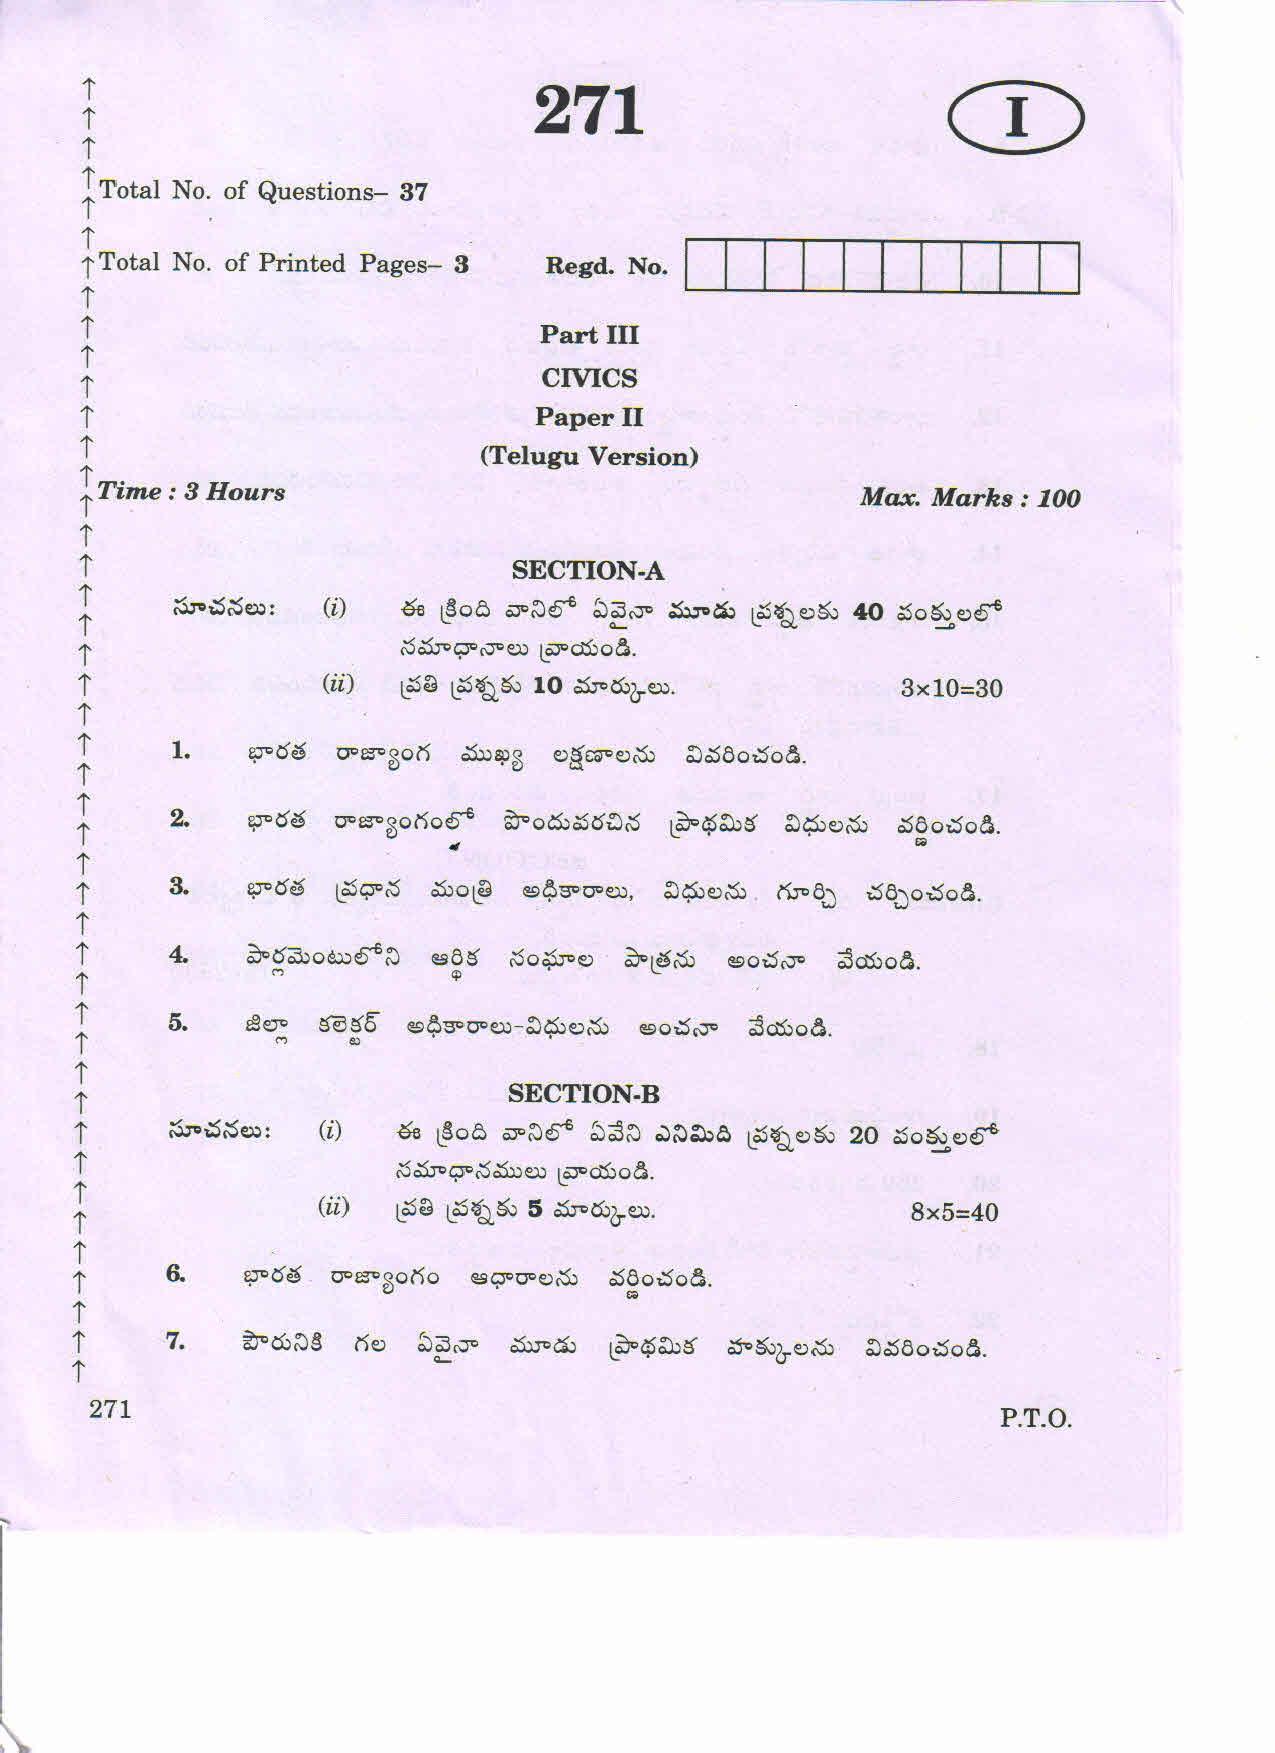 271
I
Total No. of Questions– 37
Total No. of Printed Pages– 3 Regd. No.
Part III
CIVICS
Paper II
(Telugu Version)
Time : 3 Hours Max. Marks : 100
SECTION-A
సూచనలు: (i) ఈ క్రింది వానిలో ఏవైనా మూడు ప్రశ్నలకు 40 పంక్తులలో
సమాధానాలు వ్రాయండి.
(ii) ప్రతి ప్రశ్నకు 10 మార్కులు. 3×10=30
1. భారత రాజ్యాంగ ముఖ్య లక్షణాలను వివరించండి.
2. భారత రాజ్యాంగంలో పొందుపరచిన ప్రాథమిక విధులను వర్ణించండి.
3. భారత ప్రధాన మంత్రి అధికారాలు, విధులను గూర్చి చర్చించండి.
4. పార్లమెంటులోని ఆర్థిక సంఘాల పాత్రను అంచనా వేయండి.
5. జిల్లా కలెక్టర్ అధికారాలు-విధులను అంచనా వేయండి.
SECTION-B
సూచనలు: (i) ఈ క్రింది వానిలో ఏవేని ఎనిమిది ప్రశ్నలకు 20 పంక్తులలో
సమాధానములు వ్రాయండి.
(ii) ప్రతి ప్రశ్నకు 5 మార్కులు. 8×5=40
6. భారత రాజ్యాంగం ఆధారాలను వర్ణించండి.
7. పౌరునికి గల ఏవైనా మూడు ప్రాథమిక హక్కులను వివరించండి.
271 P.T.O.